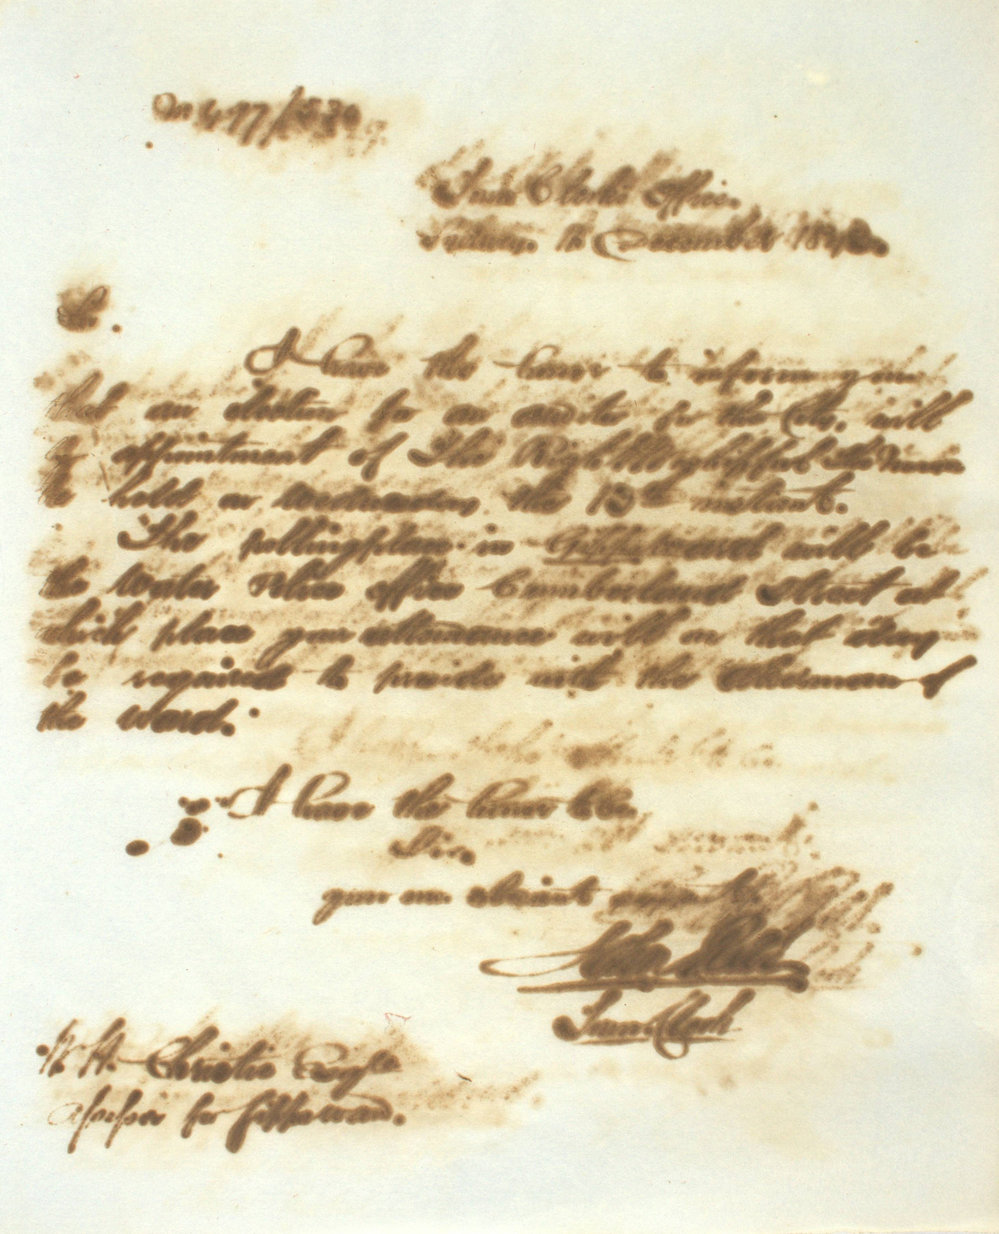 Town Clerk's Office.
Sydney. 16 December 1843.
Sir.
I have the honor to inform you
that an election for an auditor for the City. will
by appointment of The Right Worshipful the Mayor
be holden on the 19th instant.
The polling place in Gipps Ward will be
the Water Police Office Cumberland Street at
which place your attendance will on that day
be required to preside with the Alderman of
the ward.
I have the honor to be.
Sir,
your mo. obedient servant
Town Clerk
W. H. Christie Esqre
Assessor for Gipps ward.